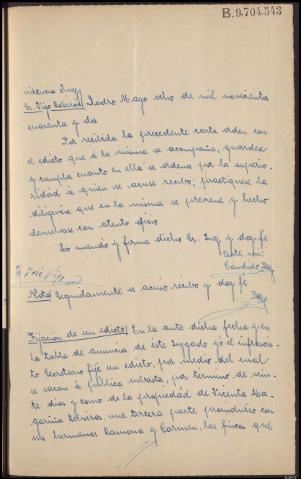 B.9.704.343
videncia Juez
Sr. Vigo Padron, Mayo ocho de mil novecientos
cuarenta y dos
Por recibida la precedente carta orden con
el edicto que a la misma se acompaña, guardese
y cumpla cuanto en ella se ordena por la superio-
ridad á quien se acuse recibo; practiquese la
diligencia que en la misma se previene y hecho
devuelvase con atento oficio
Lo mando y firma dicho Sr. Juez y doy fé
ante mi:
José Vigo
Candido
Nota/ Seguidamente se acusó recibo y doy fé
Fijación de un edicto/ En la ante dicha fecha y en
la tabla de anuncios de este Juzgado yo el infrascri-
to Secretario fijé un edicto, por medio del cual
se sacan á publica subasta, por termino de vein-
te dias y como de la propiedad de Vicenta Ma-
gariños una tercera parte proindiviso con
sus hermanas Ramona y Carmen, las fincas que